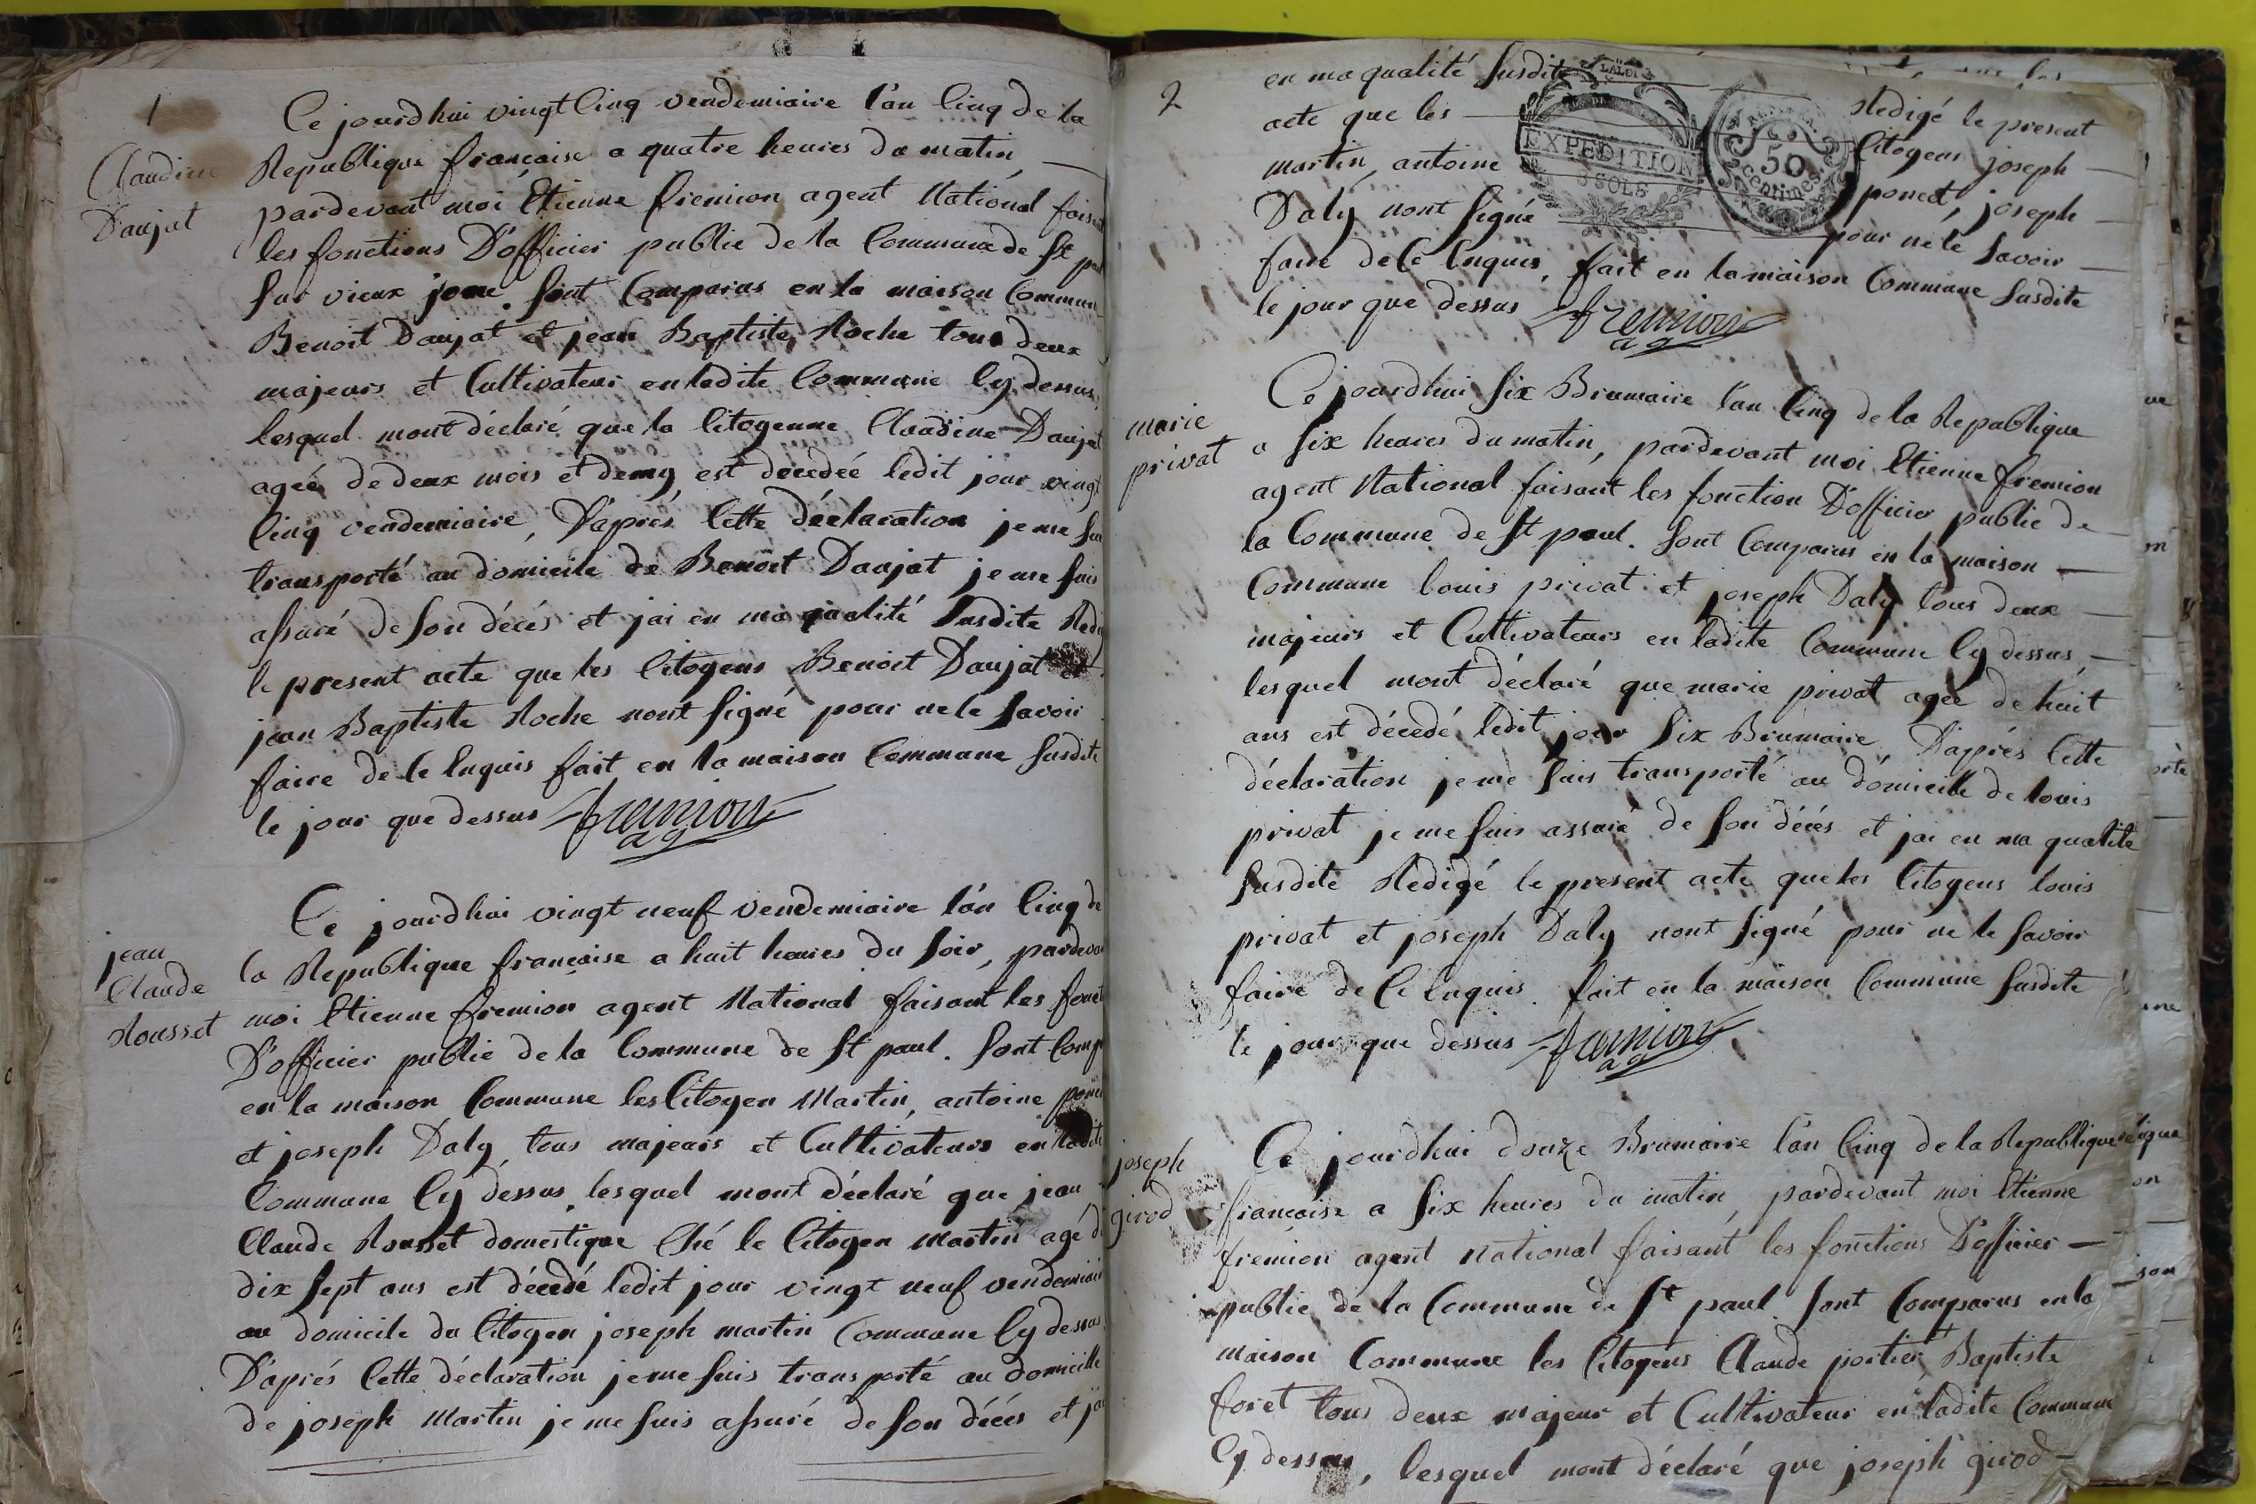 1
Ce jourdhui vingt Cinq vendemiaire l'an Cinq de la
Claudine
Republique francaise a quatre heures du matin
Daujat
pardevant moi Etienne fremion agent National
les fonctions D'officier public de la Commune de St
sur vieux jonc. sont Comparus en la maison
Benoit Daujat et jean Baptiste Roche tous deux
majeurs et Cultivateur en ladite Commune Cy dessus
lesquel mont déclaré que la Citoyenne Claudine Daujat
agée de deux mois et demy est decedeé ledit jour vingt
Cinq vendemiaire, D'aprés Cette déclaration je me
transporté au domicile de Benoit Daujat je me suis
assuré de son décés et jai en ma qualité susdite
le present acte que les Citoyens Benoit Daujat et
jean Baptiste Roche nont signé pour ne le savoir
faire de Ce Enquis fait en la maison Commune susdite
le jour que dessus fremion
ag
Ce jourdhui vingt neuf vendemiaire l'an Cinq de
jean
Claude
Rousset
la Republique francaise a huit heures du soir,
moi Etienne fremion agent National faisant les
D'officier public de la Commune de St paul. sont
en la maison Commune les Citoyen Martin, antoine
et joseph Daly tous majeurs et Cultivateurs en ladite
Commune Cy dessus, lesquel mont déclaré que jean
Claude Rousset domestique Ché le Citoyen Martin agé
dix sept ans est décedé ledit jour vingt neuf vendemiaire
au domicile du Citoyen joseph martin Commune Cy dessus
D'aprés Cette déclaration je me suis transporté au domicille
de joseph Martin je me suis assuré de son décés et jai
2
en ma qualité susdite Redigé le present
acte que les Citoyens joseph
martin, antoine poncet, joseph
Daly nont signé pour ne le savoir
faire de Ce Enquis, fait en la maison Commune susdite
le jour que dessus fremion
ag
EXPEDITION
5 SOLS
50
centimes
Ce jourdhui six Brumaire l'an Cinq de la Republique
marie
privat
a six heures du matin, pardevant moi Etienne fremion
agent National faisant les fonction D'officier public de
la Commune de St paul. sont Comparus en la maison
Commune louis privat et joseph Daly tous deux
majeurs et Cultivateurs en ladite Commune Cy dessus,
lesquel mont déclaré que marie privat agée de huit
ans est décedé ledit jour six Brumaire, D'aprés Cette
déclaration je me suis transporté au dómicille de louis
privat je me suis assuré de son décés et jai en ma qualité
susdite Redigé le present acte que les Citoyens louis
privat et joseph Daly nont signé pour ne le savoir
faire de Ce Enquis. fait en la maison Commune susdite
le jour que dessus fremion
ag
Ce jourdhui douze Brumaire l'an Cinq de la Republique
joseph
girod
francaise a six heures du matin, pardevant moi Etienne
fremion agent national faisant les fonctions D'officier
public de la Commune de St paul sont Comparus en la
maison Commune les Citoyens Claude portier Baptiste
foret tous deux majeur et Cultivateur en ladite Commune
Cy dessus, lesquel mont déclaré que joseph girod